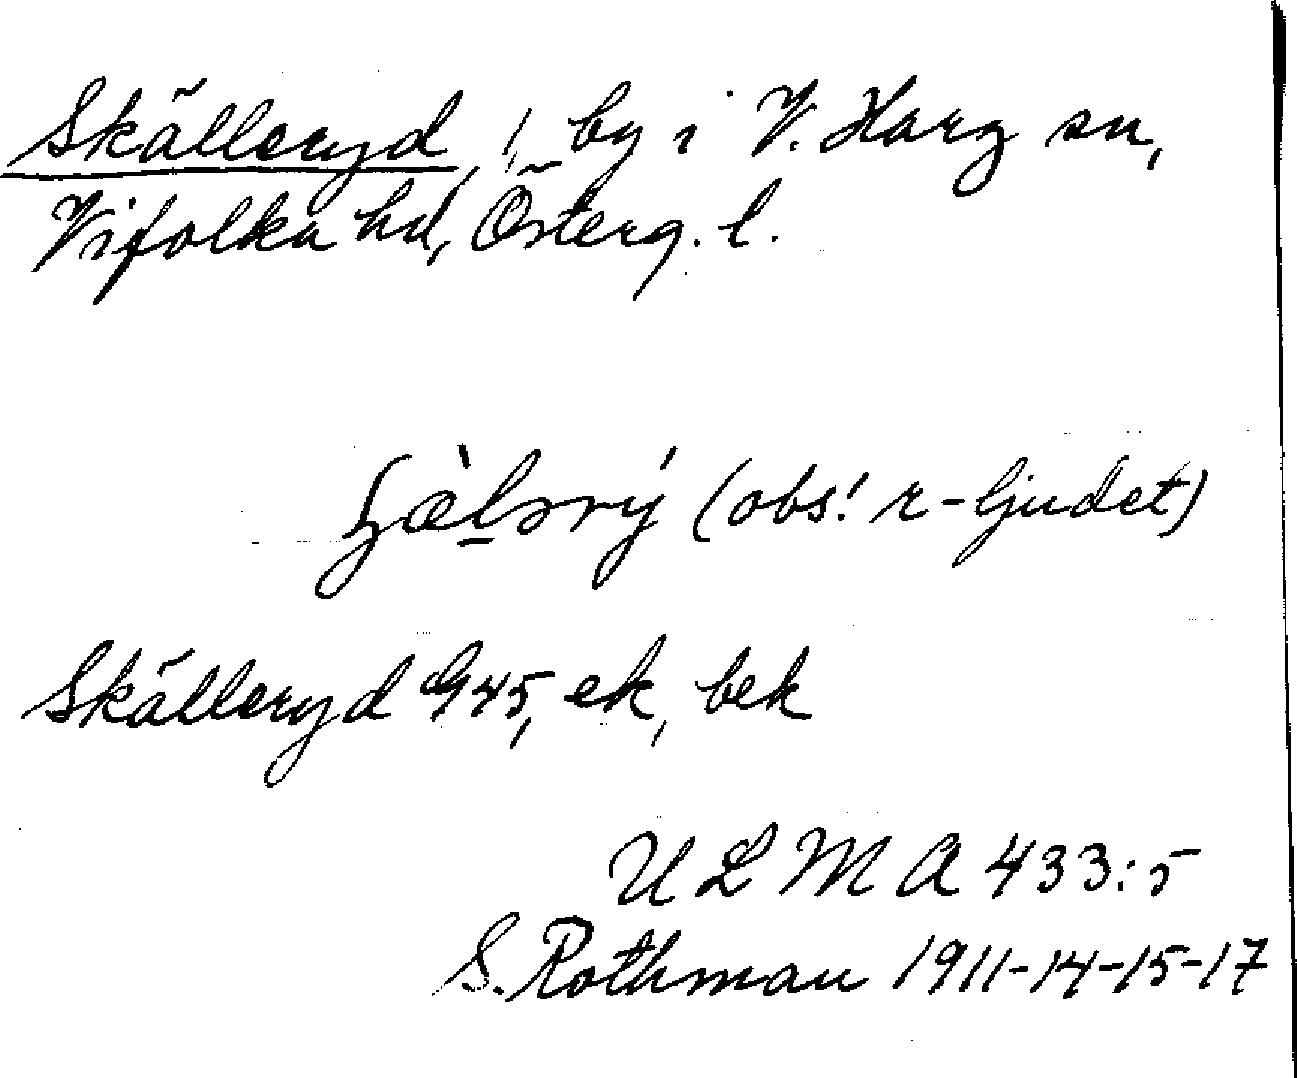 Skälleryd, !, by i V. Harg sn,
Vifolka hd, Österg. l.
(obs! r-ljudet)
Skälleryd G45, ek, bek
ULMA 433:5
S. Rothman 1911-14-15-17